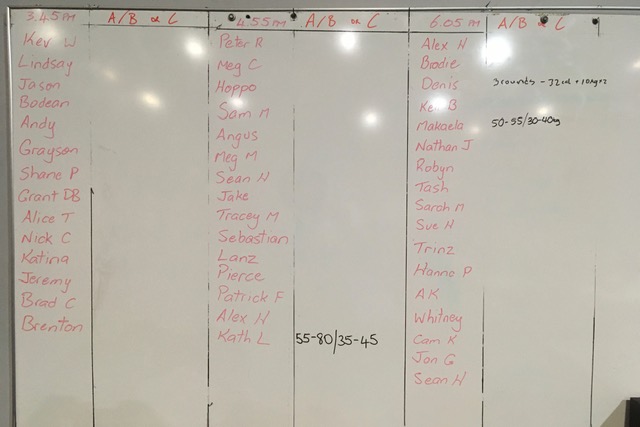 3.45PM A/B or C
Kev W
Lindsay
Jason
Badean
Andy
Grayson
Shane P
Grant DB
Alice T
Nick C
Katina
Jeremy
Brad C
Brenton
4.55PM A/B or C
Peter R
Meg C
Hoppo
Sam M
Angus
Meg M
Sean H
Jake
Tracey M
Sebastian
Lanz
Pierce
Patrick F
Alex H
Kath L 55-80/35-45
6.05PM A/B or C
Alex H
Brodie
Denis 3 rounds - 32cal + 10kg x 2
Ken B
Makaela 50-55/30-40kg
Nathan J
Robyn
Tash
Sarah M
Sue H
Trinz
Hanne P
AK
Whitney
Cam K
Jon G
Sean H